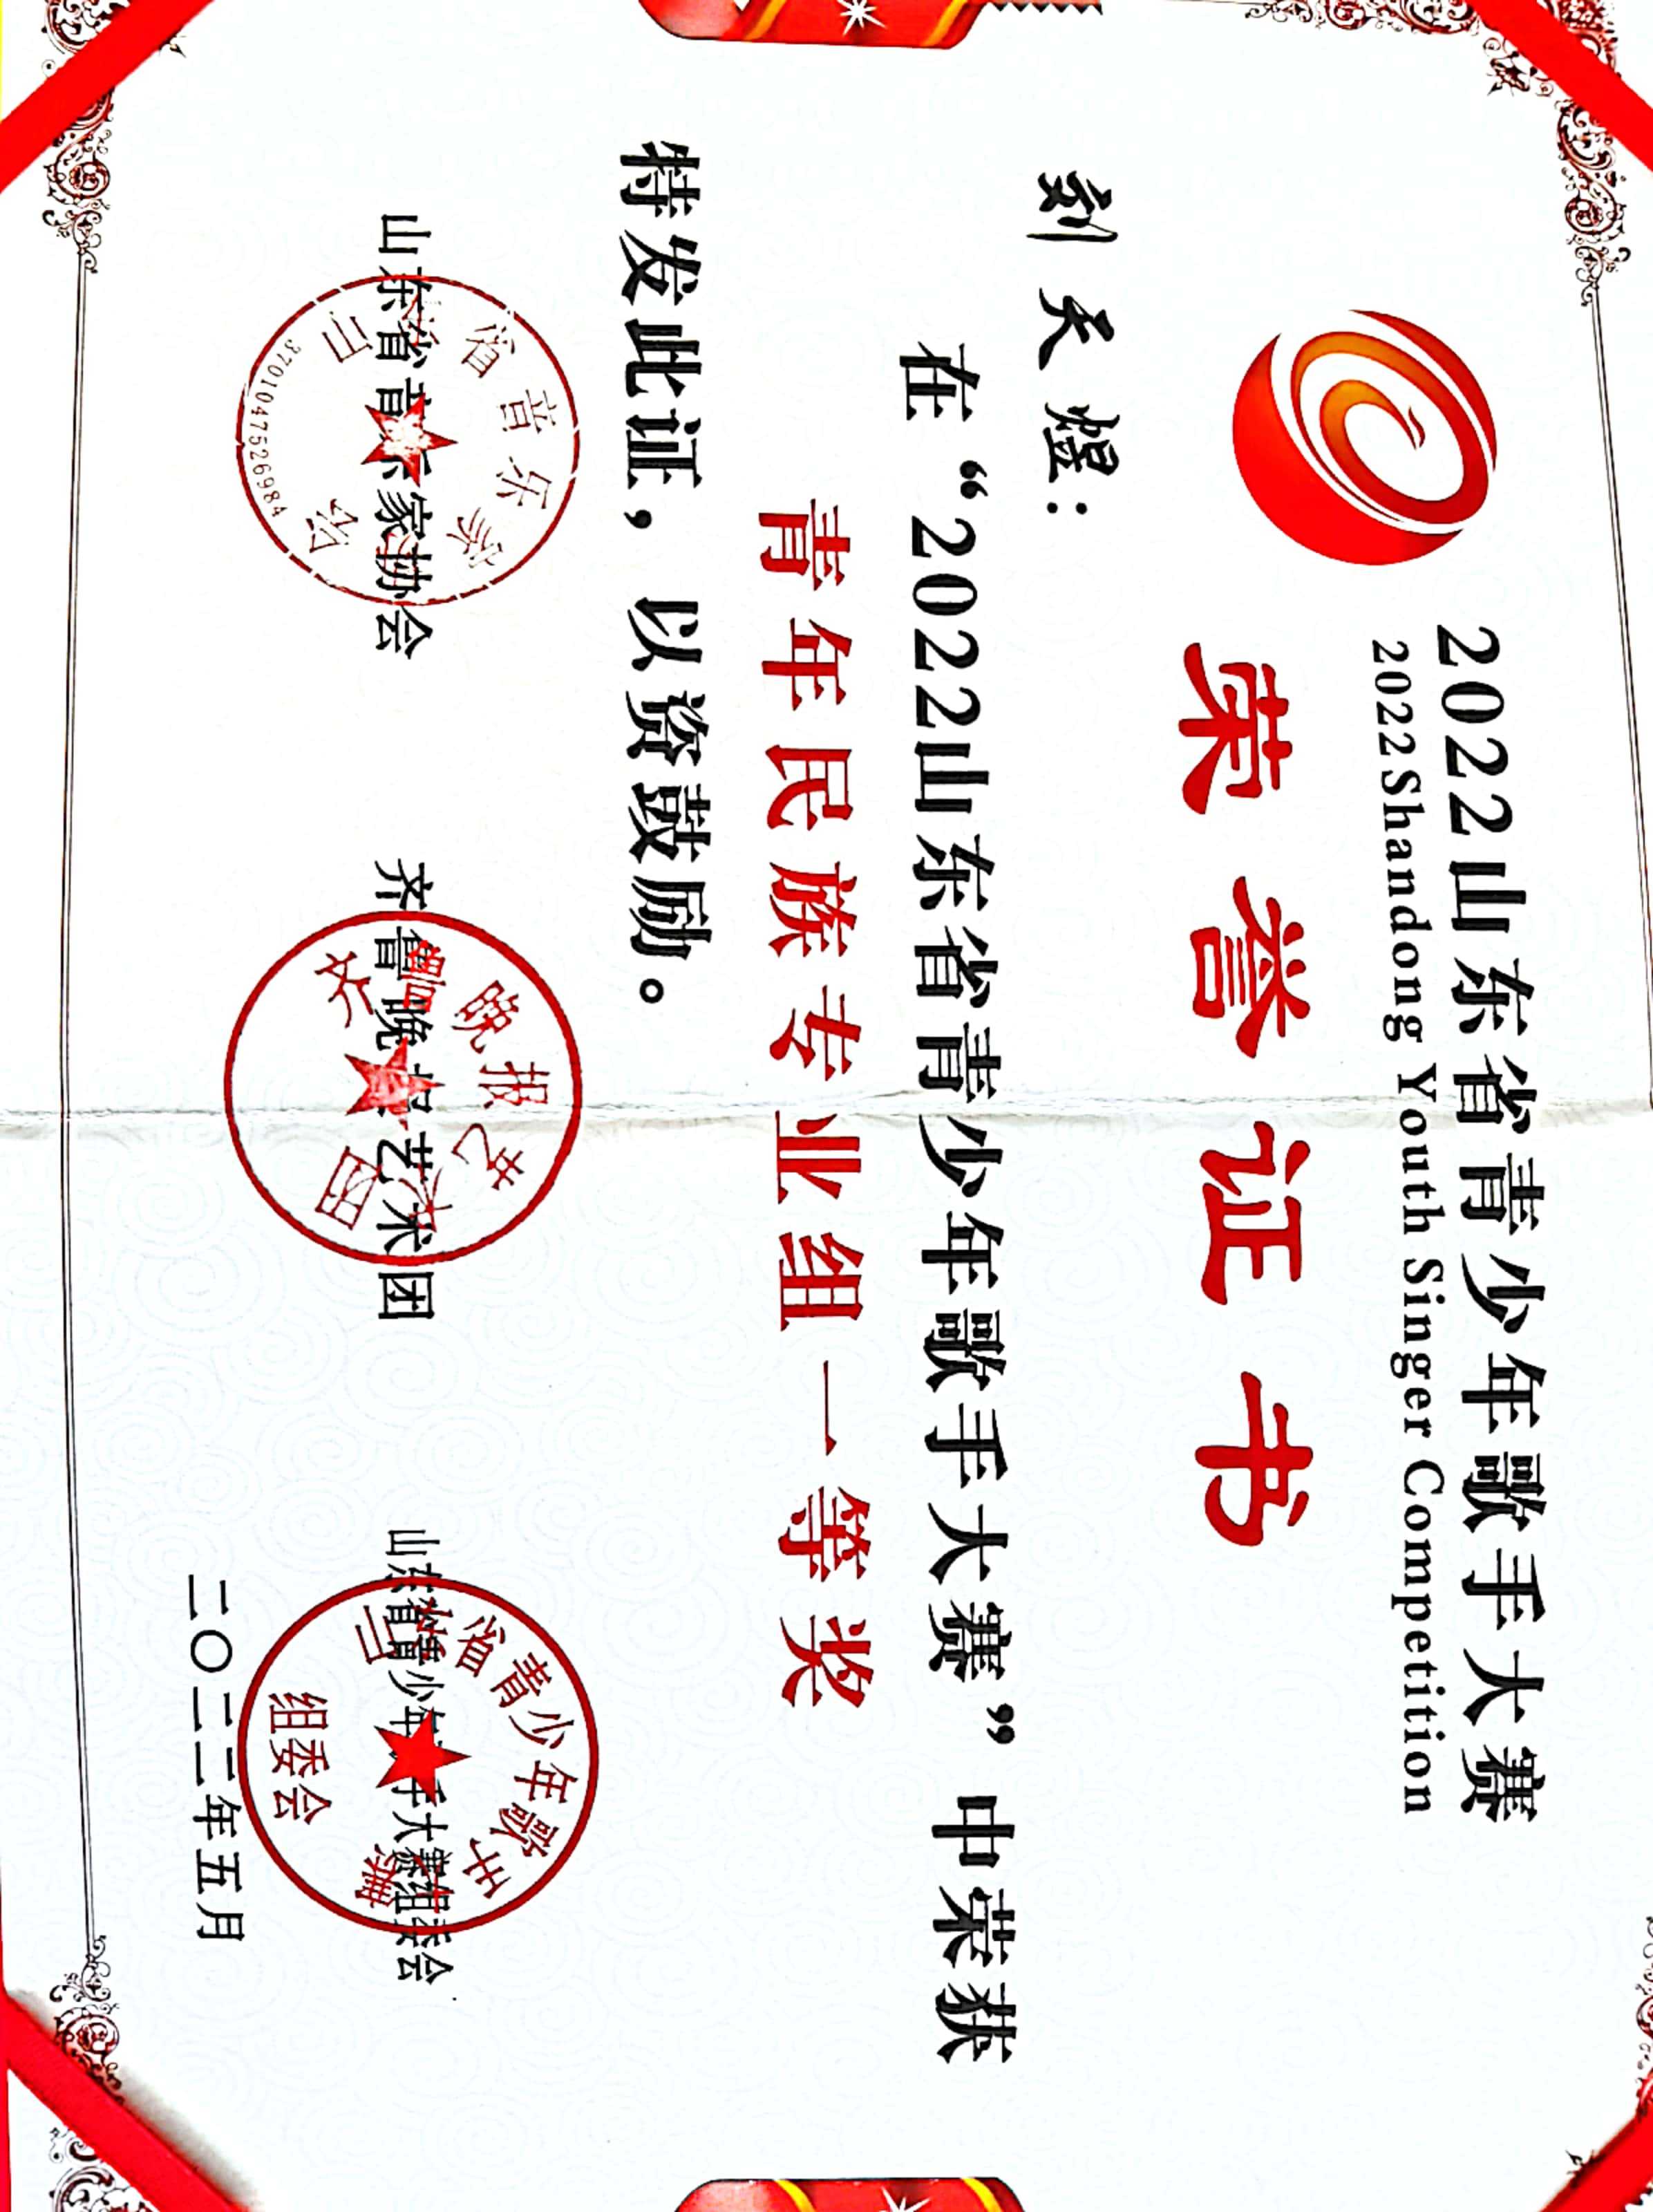 2022山东省青少年歌手大赛
2022 Shandong Youth Singer Competition
荣誉证书
刘天煜：
在“2022山东省青少年歌手大赛”中荣获
青年民族专业组一等奖
特发此证，以资鼓励。
山东省音乐家协会
齐鲁晚报艺术团
山东省青少年歌手大赛组委会
山东省音乐家协会
3701047526984
齐鲁晚报艺术团
山东省青少年歌手大赛
组委会
二〇二二年五月